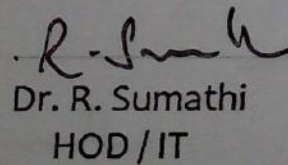 R. Sumath
Dr. R. Sumathi
HOD / IT